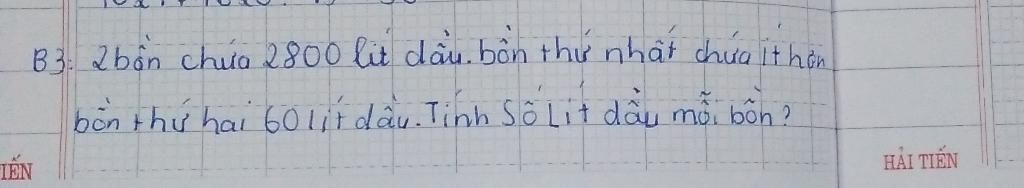 B3: 2 bồn chứa 2800 lít dầu. bồn thứ nhất chứa ít hơn
bồn thứ hai 60 lít dầu. Tính Số Lít dầu mỗi bồn?
IẾN
HẢI TIẾN